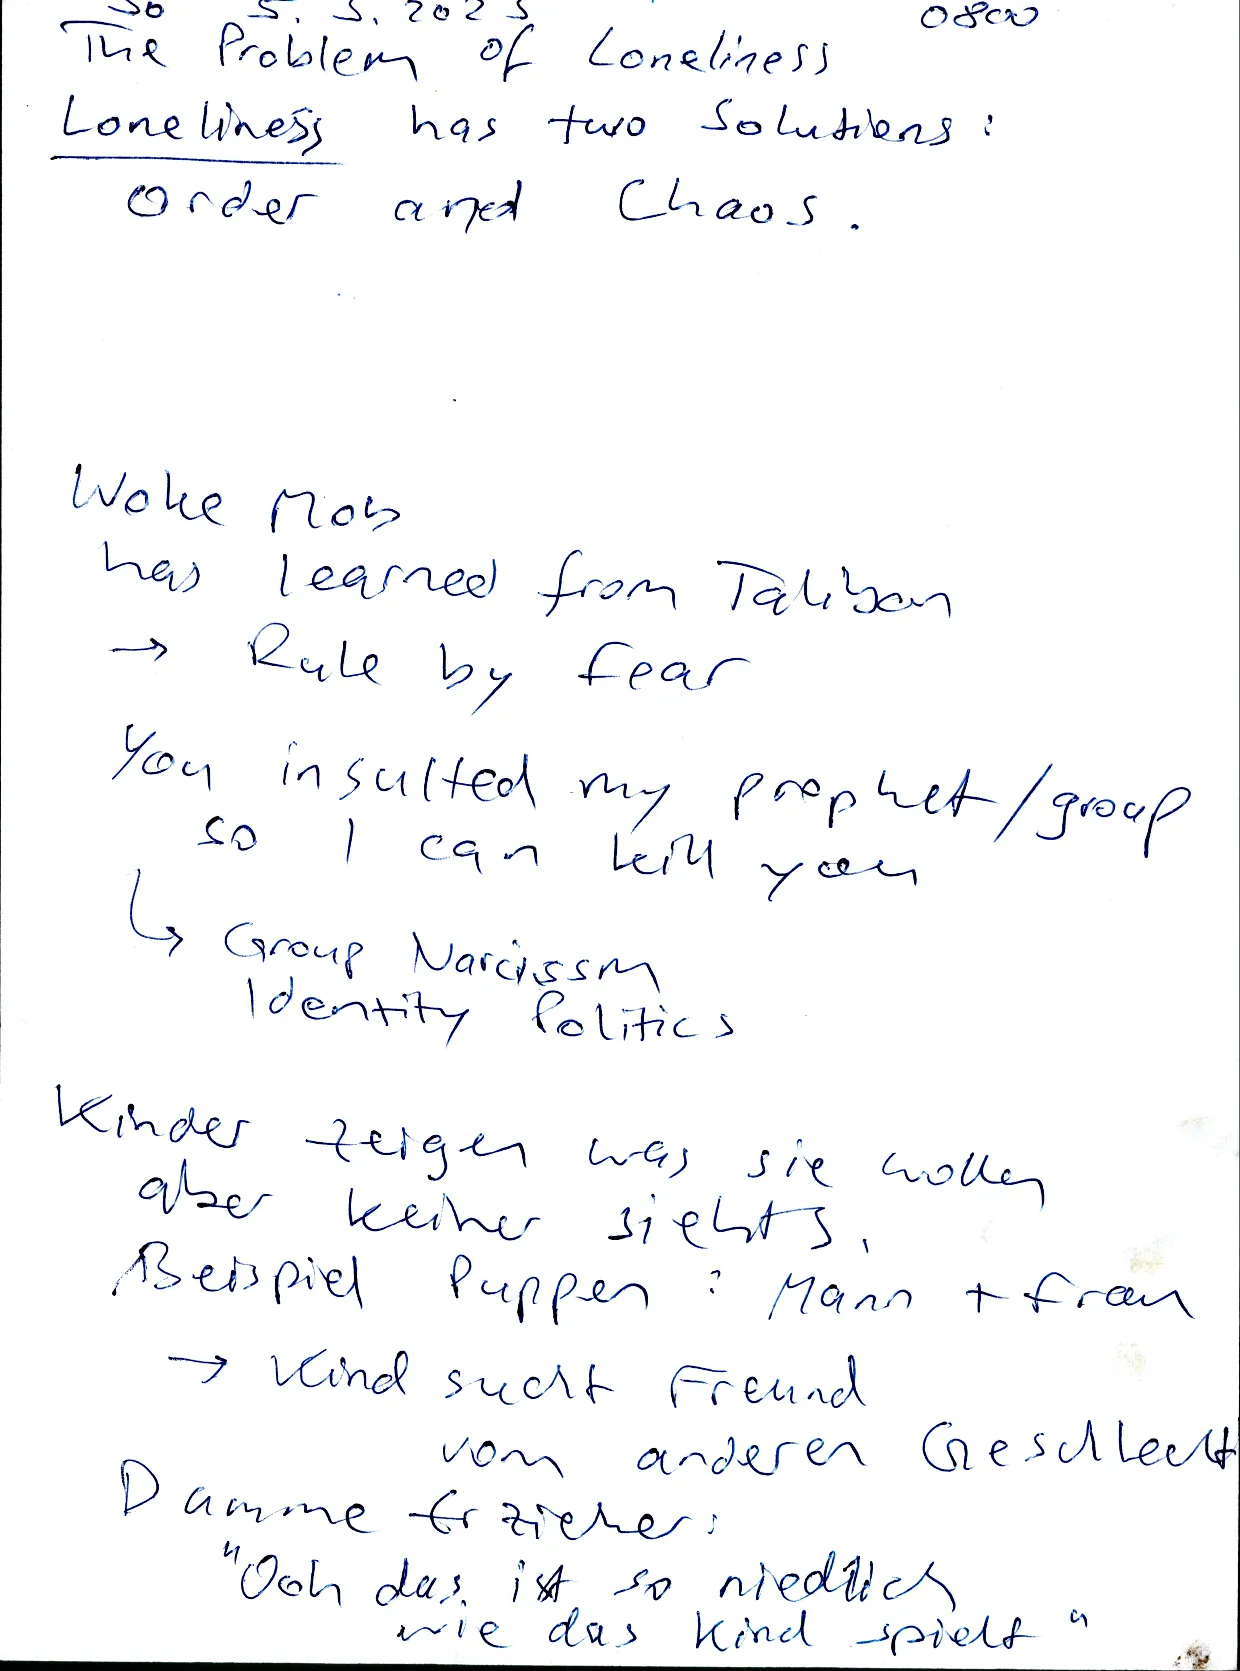 So 5. 3. 2023 0800
The Problem of Loneliness
Loneliness has two Solutions:
Order and Chaos.
Woke Mob
has learned from Taliban
→ Rule by fear
You insulted my prophet/group
so I can kill you
↳ Group Narcissm
Identity Politics
Kinder zeigen was sie wollen
aber keiner siehts.
Beispiel Puppen: Mann + Frau
→ Kind sucht Freund
vom anderen Geschlecht
Dumme Erzieher:
"Ooh das ist so niedlich
wie das Kind spielt"